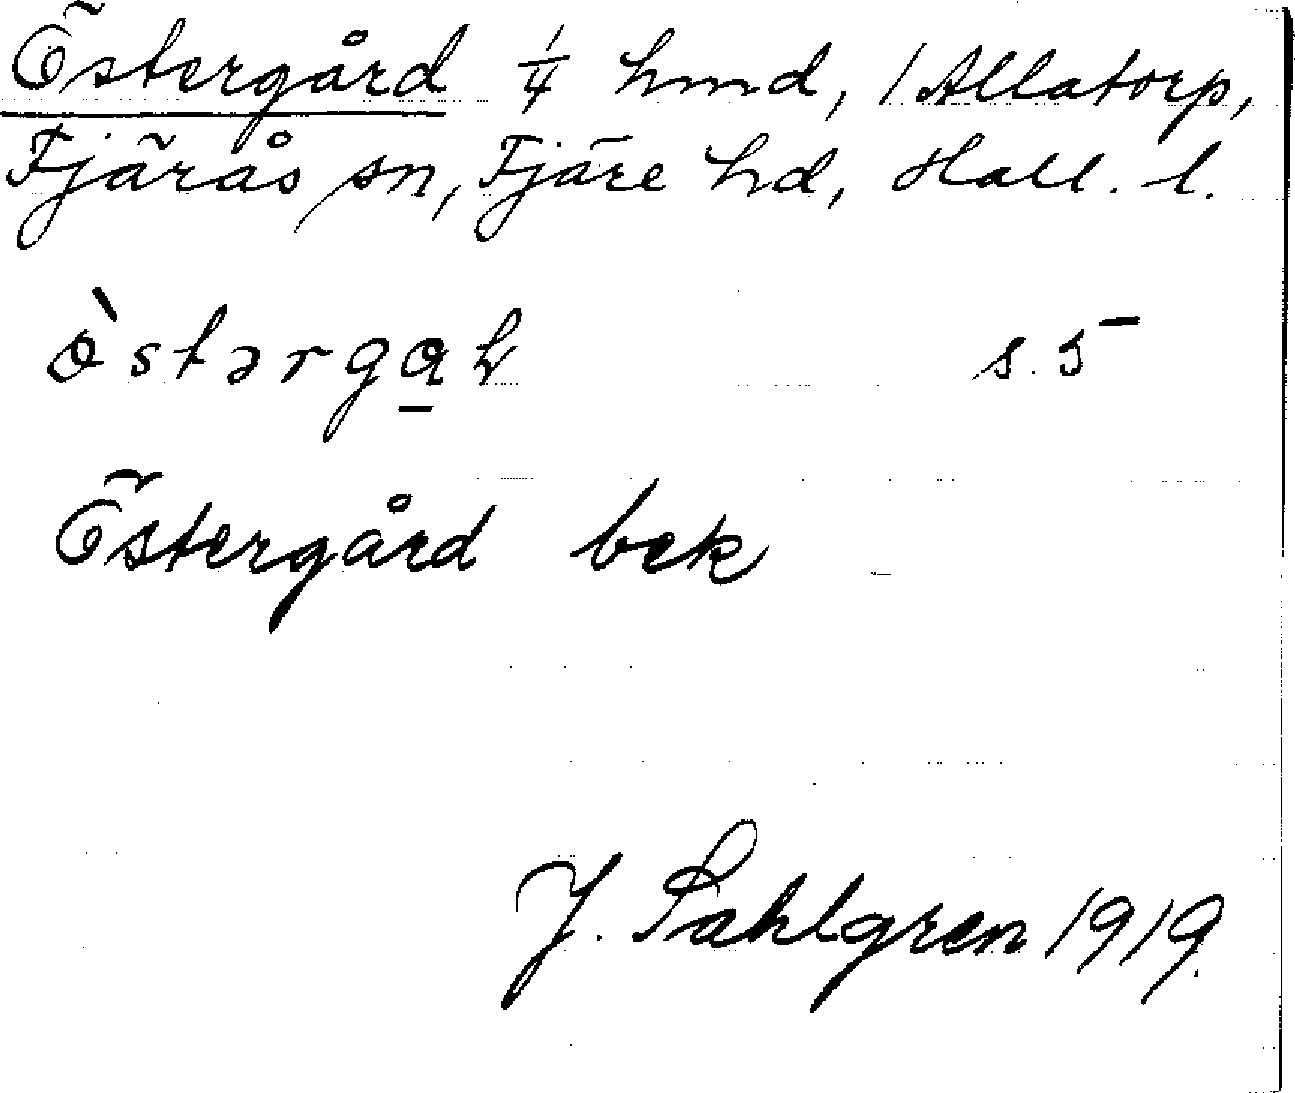 Östergård 1/4 hmd, / Allatorp,
Fjärås sn, Fjäre hd, Hall. l.
s. 5
Östergård bek
J. Sahlgren 1919.